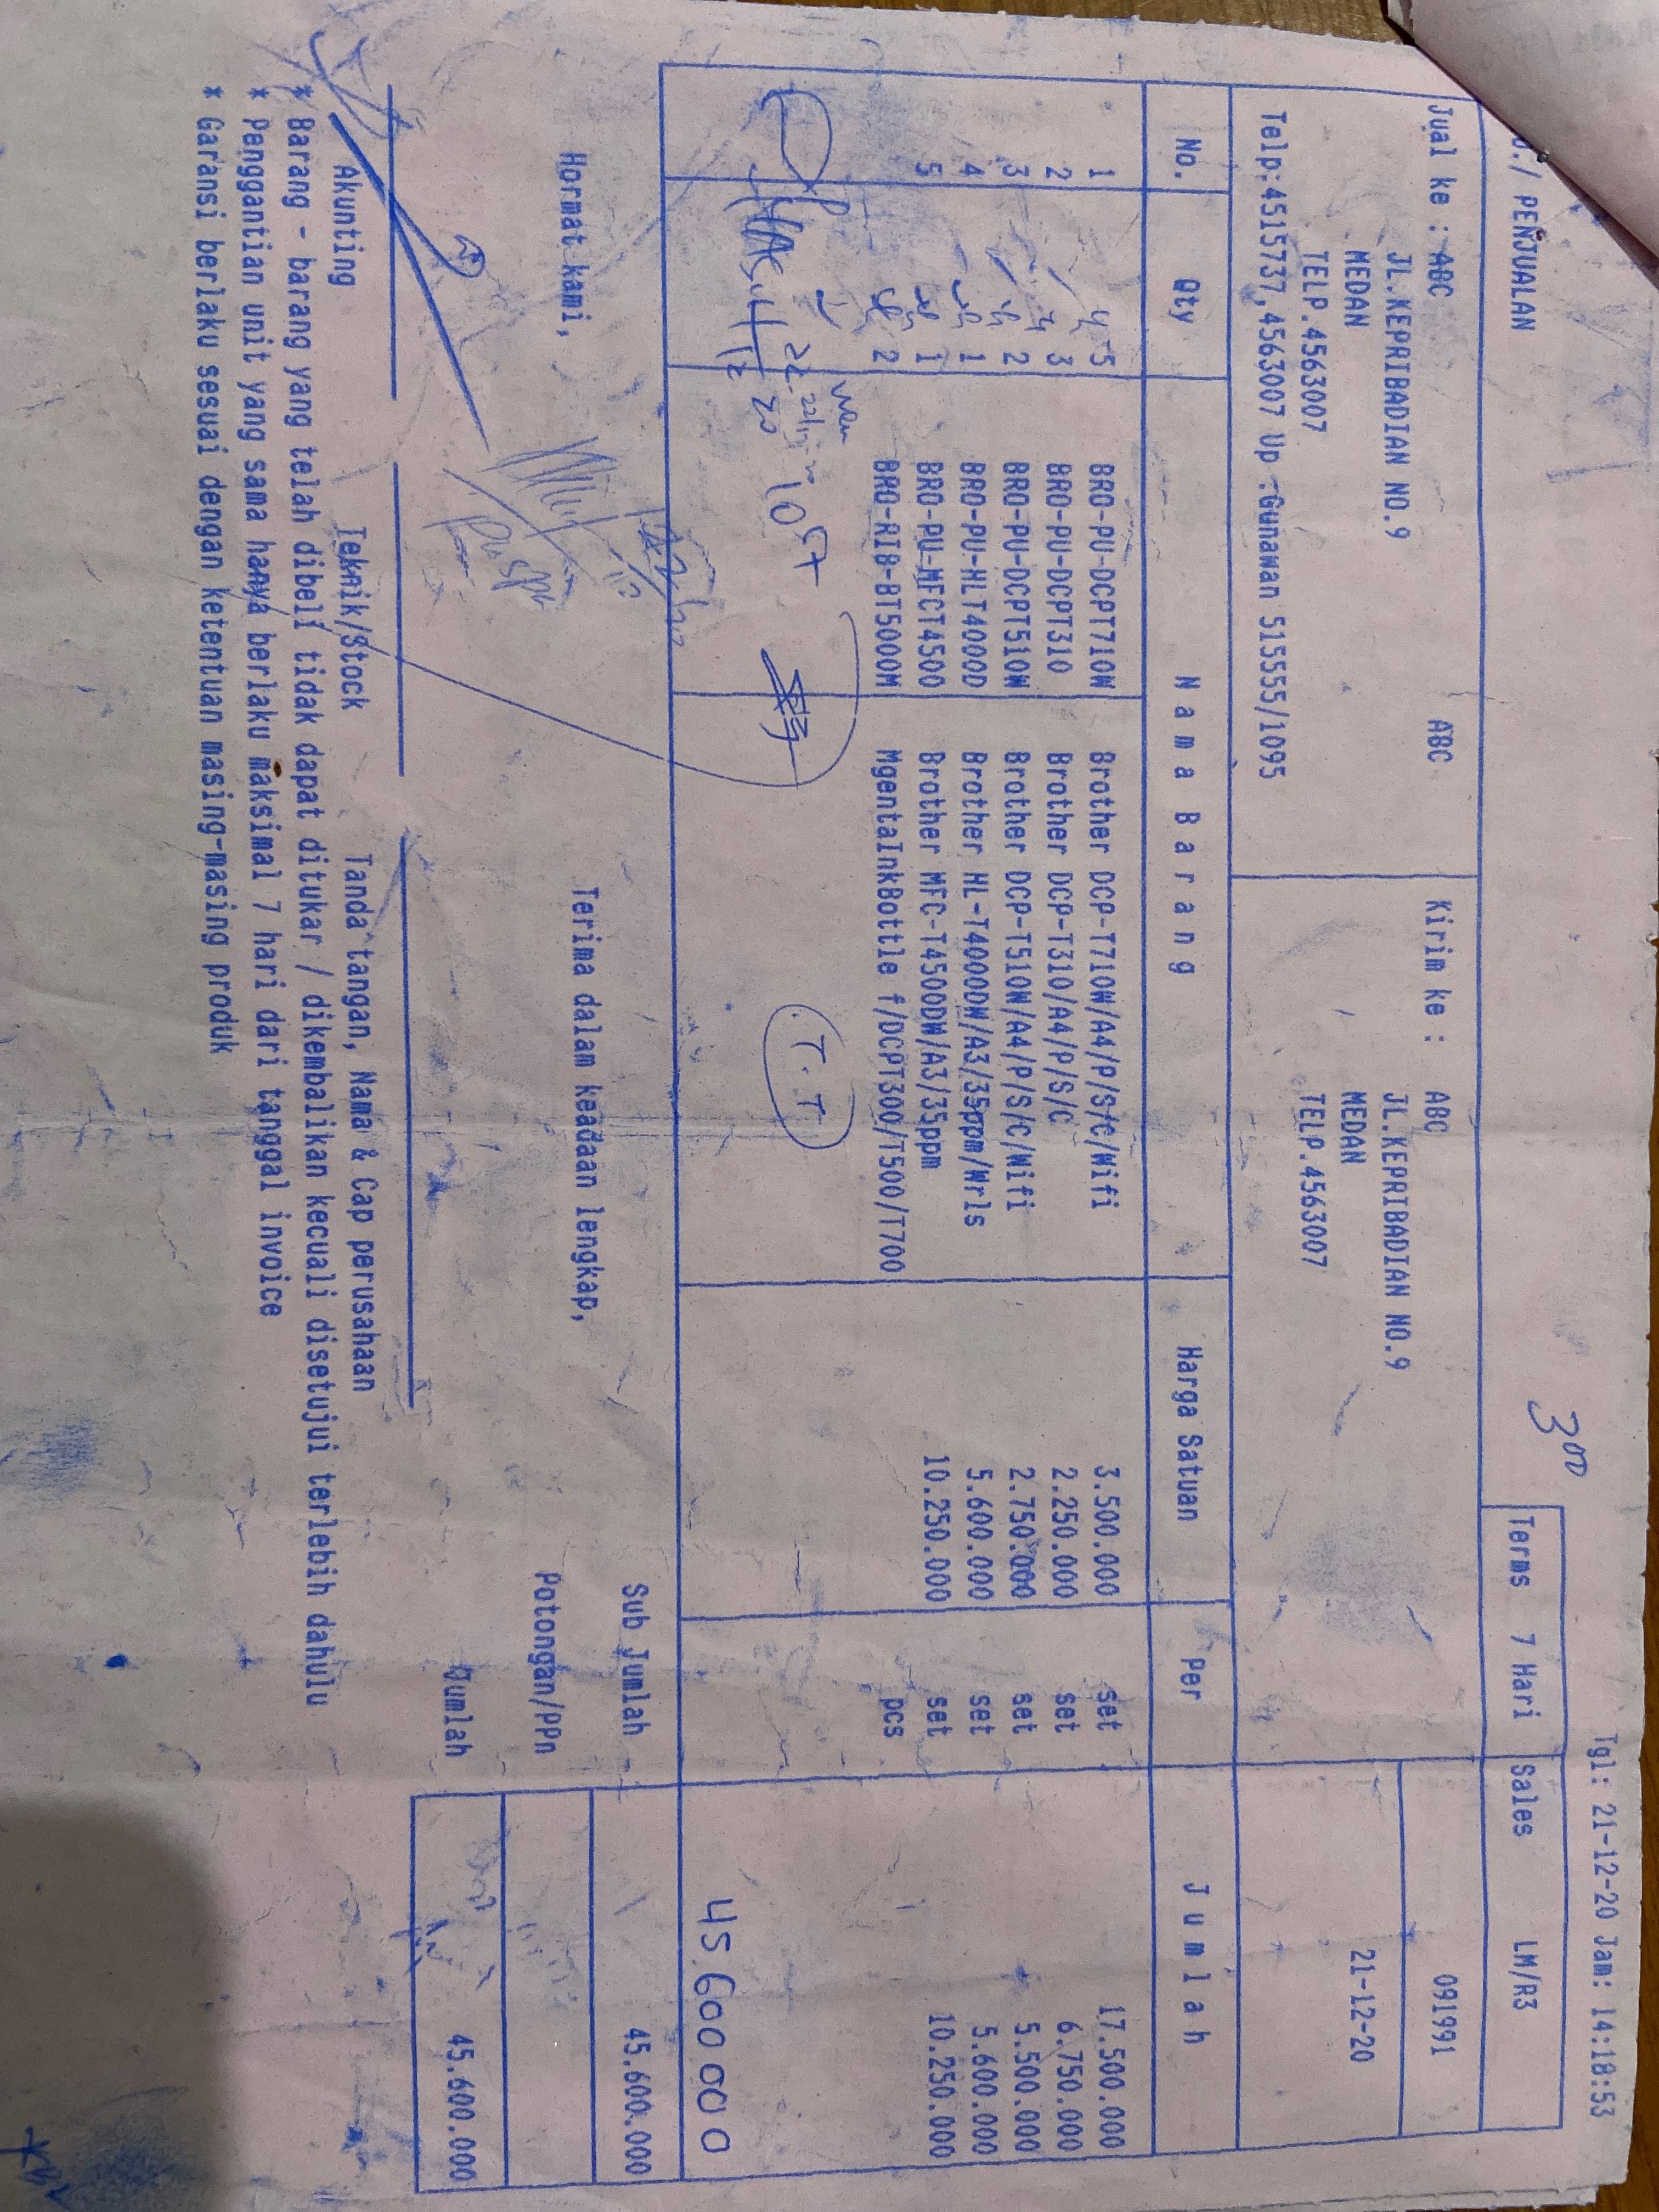 Tgl: 21-12-20 Jam: 14:18:53
300
PENJUALAN
Terms 7 Hari Sales LM/R3
Jual ke : ABC ABC Kirim ke : ABC 091991
JL.KEPRIBADIAN NO.9 JL.KEPRIBADIAN NO.9
MEDAN MEDAN 21-12-20
TELP.4563007 TELP.4563007
Telp:4515737,4563007 Up :Gunawan 515555/1095
No. Qty Nama Barang Harga Satuan Per Jumlah
1 5 BRO-PU-DCPT710W Brother DCP-T710W/A4/P/S/C/Wifi 3.500.000 set 17.500.000
2 3 BRO-PU-DCPT310 Brother DCP-T310/A4/P/S/C 2.250.000 set 6.750.000
3 2 BRO-PU-DCPT510W Brother DCP-T510W/A4/P/S/C/Wifi 2.750.000 set 5.500.000
4 1 BRO-PU-HLT4000D Brother HL-T4000DW/A3/35ppm/Wrls 5.600.000 set 5.600.000
5 1 BRO-PU-MFCT4500 Brother MFC-T4500DW/A3/35ppm 10.250.000 set 10.250.000
2 BRO-RIB-BT5000M MgentaInkBottle f/DCPT300/T500/T700 pcs
T.T
45.600 000
Sub Jumlah 45.600.000
Hormat kami, Terima dalam keadaan lengkap,
Potongan/PPn
Jumlah 45.600.000
Akunting Teknik/Stock Tanda tangan, Nama & Cap perusahaan
* Barang - barang yang telah dibeli tidak dapat ditukar / dikembalikan kecuali disetujui terlebih dahulu
* Penggantian unit yang sama hanya berlaku maksimal 7 hari dari tanggal invoice
* Garansi berlaku sesuai dengan ketentuan masing-masing produk